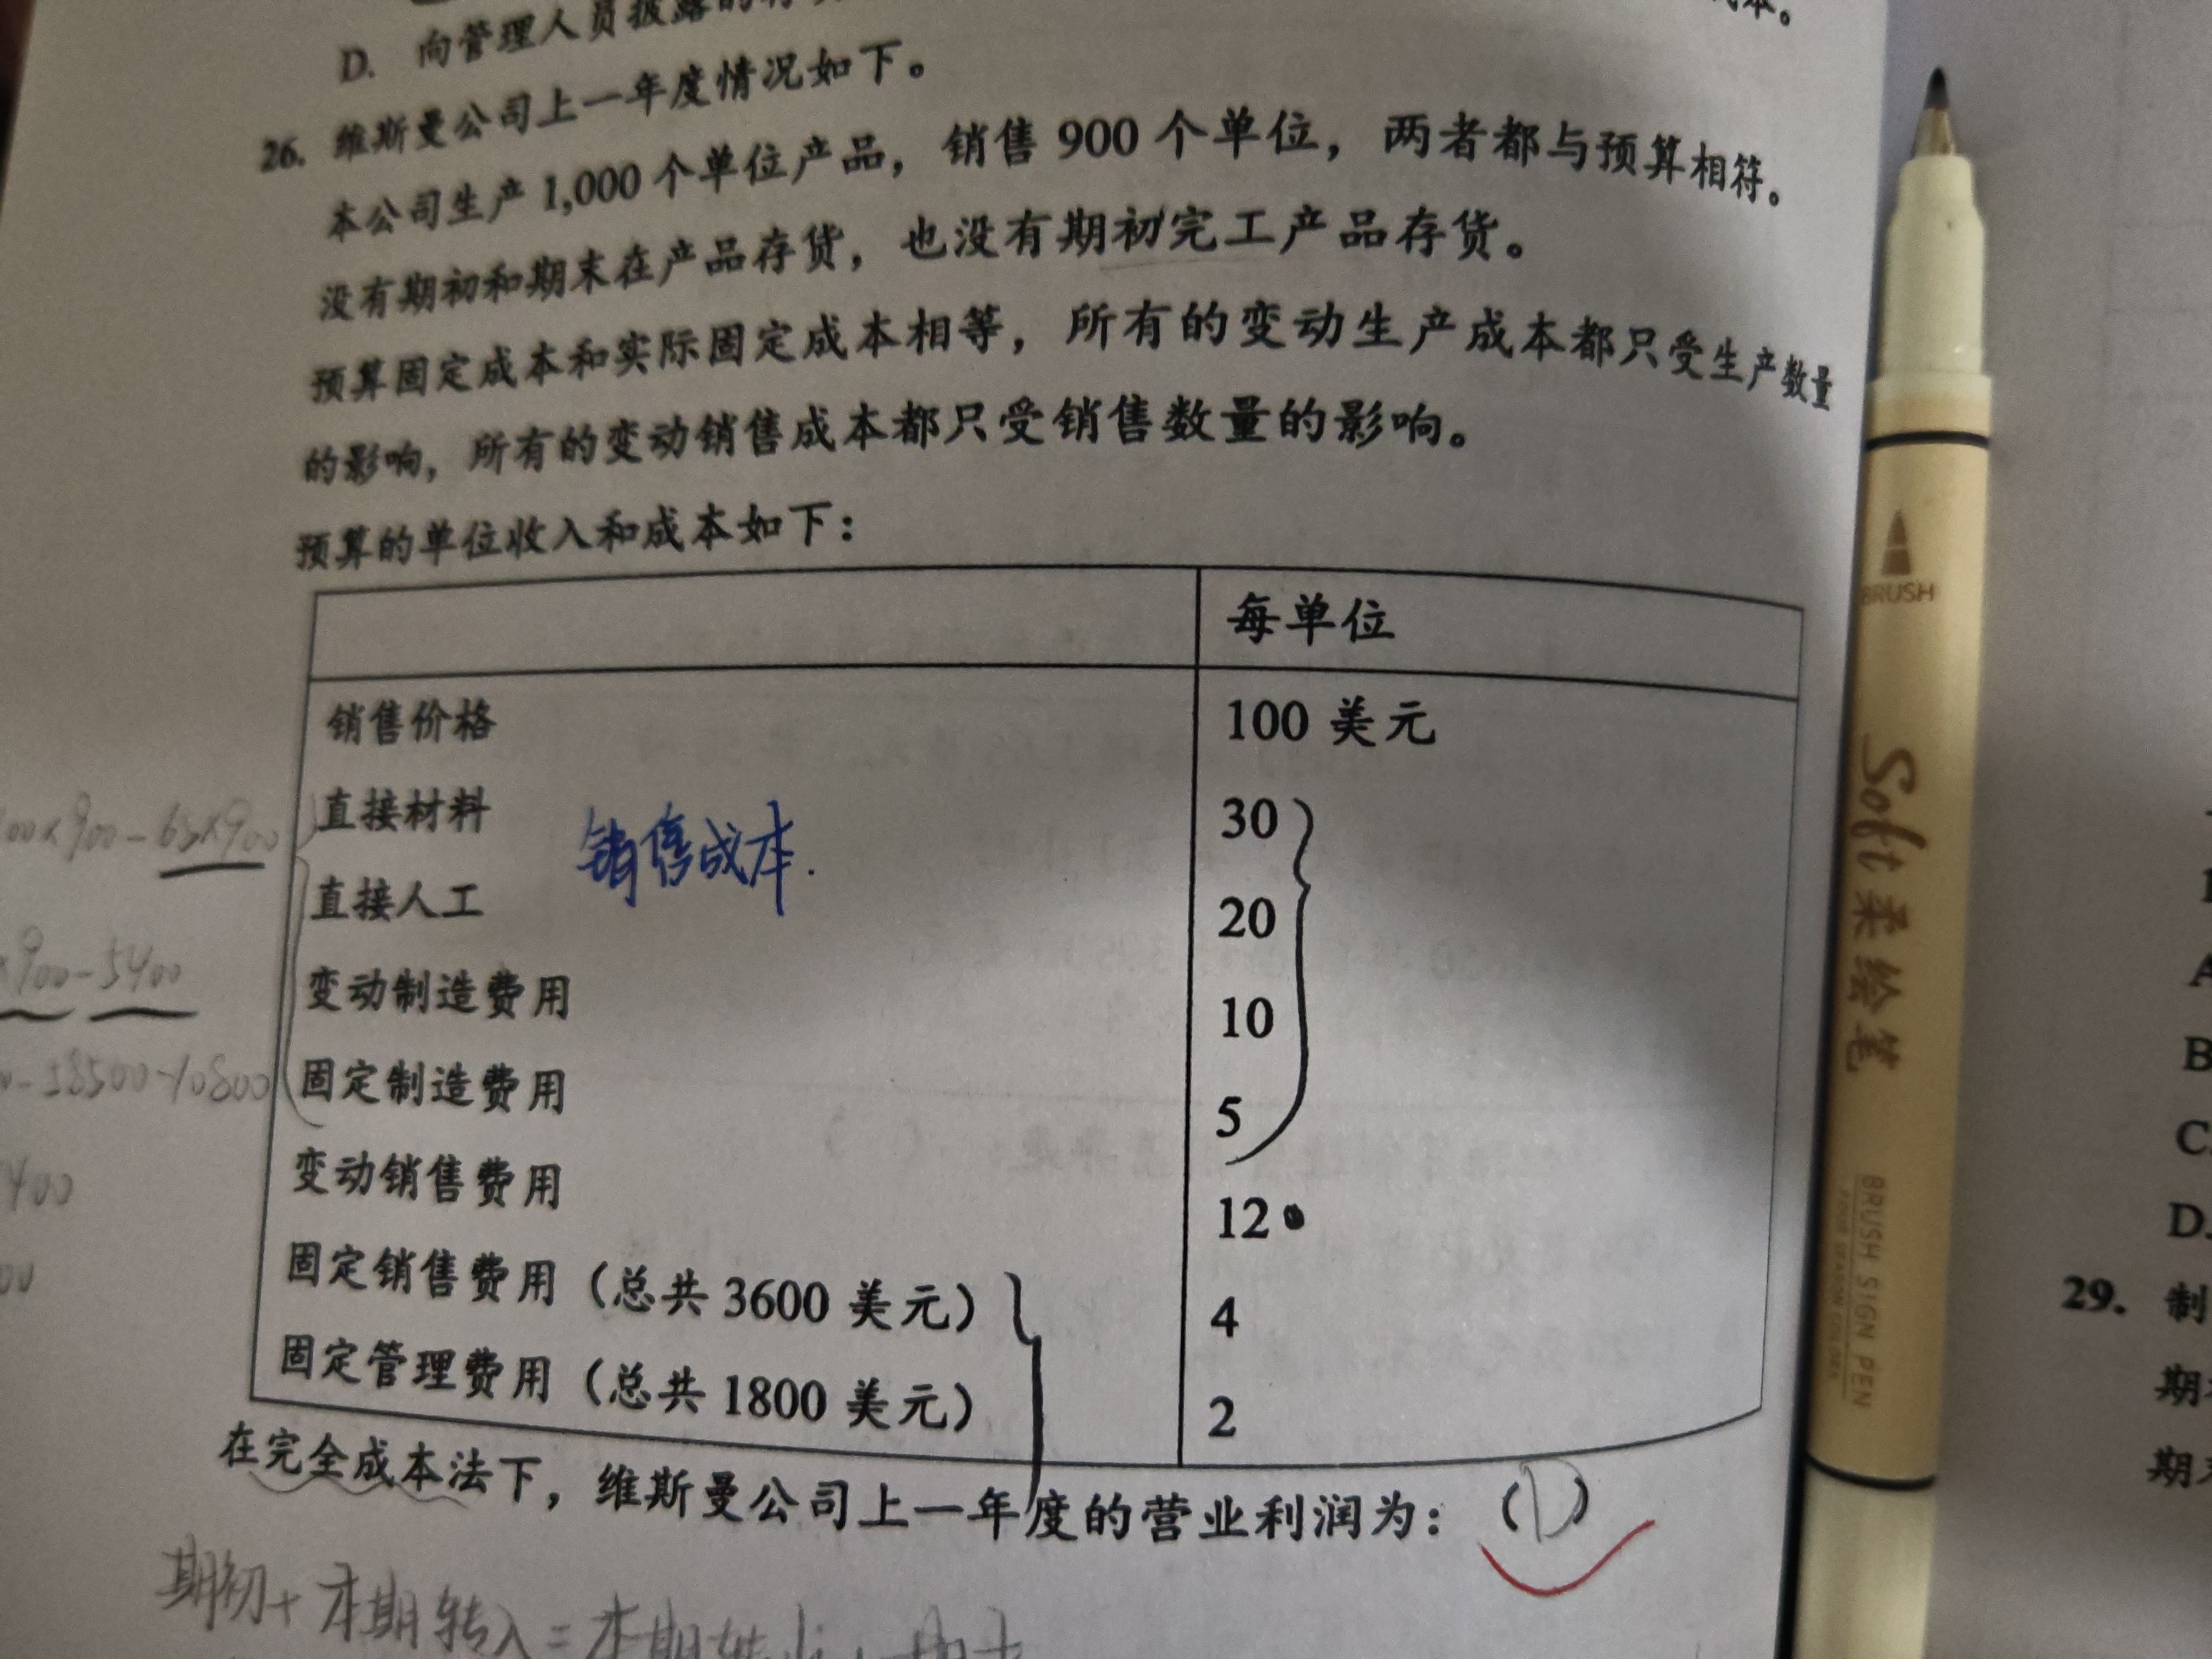 D. 向管理人员披露的
本。
26. 维斯曼公司上一年度情况如下。
本公司生产 1,000 个单位产品，销售 900 个单位，两者都与预算相符。
没有期初和期末在产品存货，也没有期初完工产品存货。
预算固定成本和实际固定成本相等，所有的变动生产成本都只受生产数量
的影响，所有的变动销售成本都只受销售数量的影响。
预算的单位收入和成本如下：
每单位
销售价格 100 美元
直接材料 30
销售成本.
直接人工 20
变动制造费用 10
固定制造费用 5
变动销售费用 12
固定销售费用（总共 3600 美元） 4
固定管理费用（总共 1800 美元） 2
在完全成本法下，维斯曼公司上一年度的营业利润为：（D）
期初+本期转入=本期
00×900-65×900
×900-5400
-58500-10800
400
00
BRUSH
Soft柔绘笔
BRUSH SIGN PEN
A
B
C.
D.
29. 制
期
期